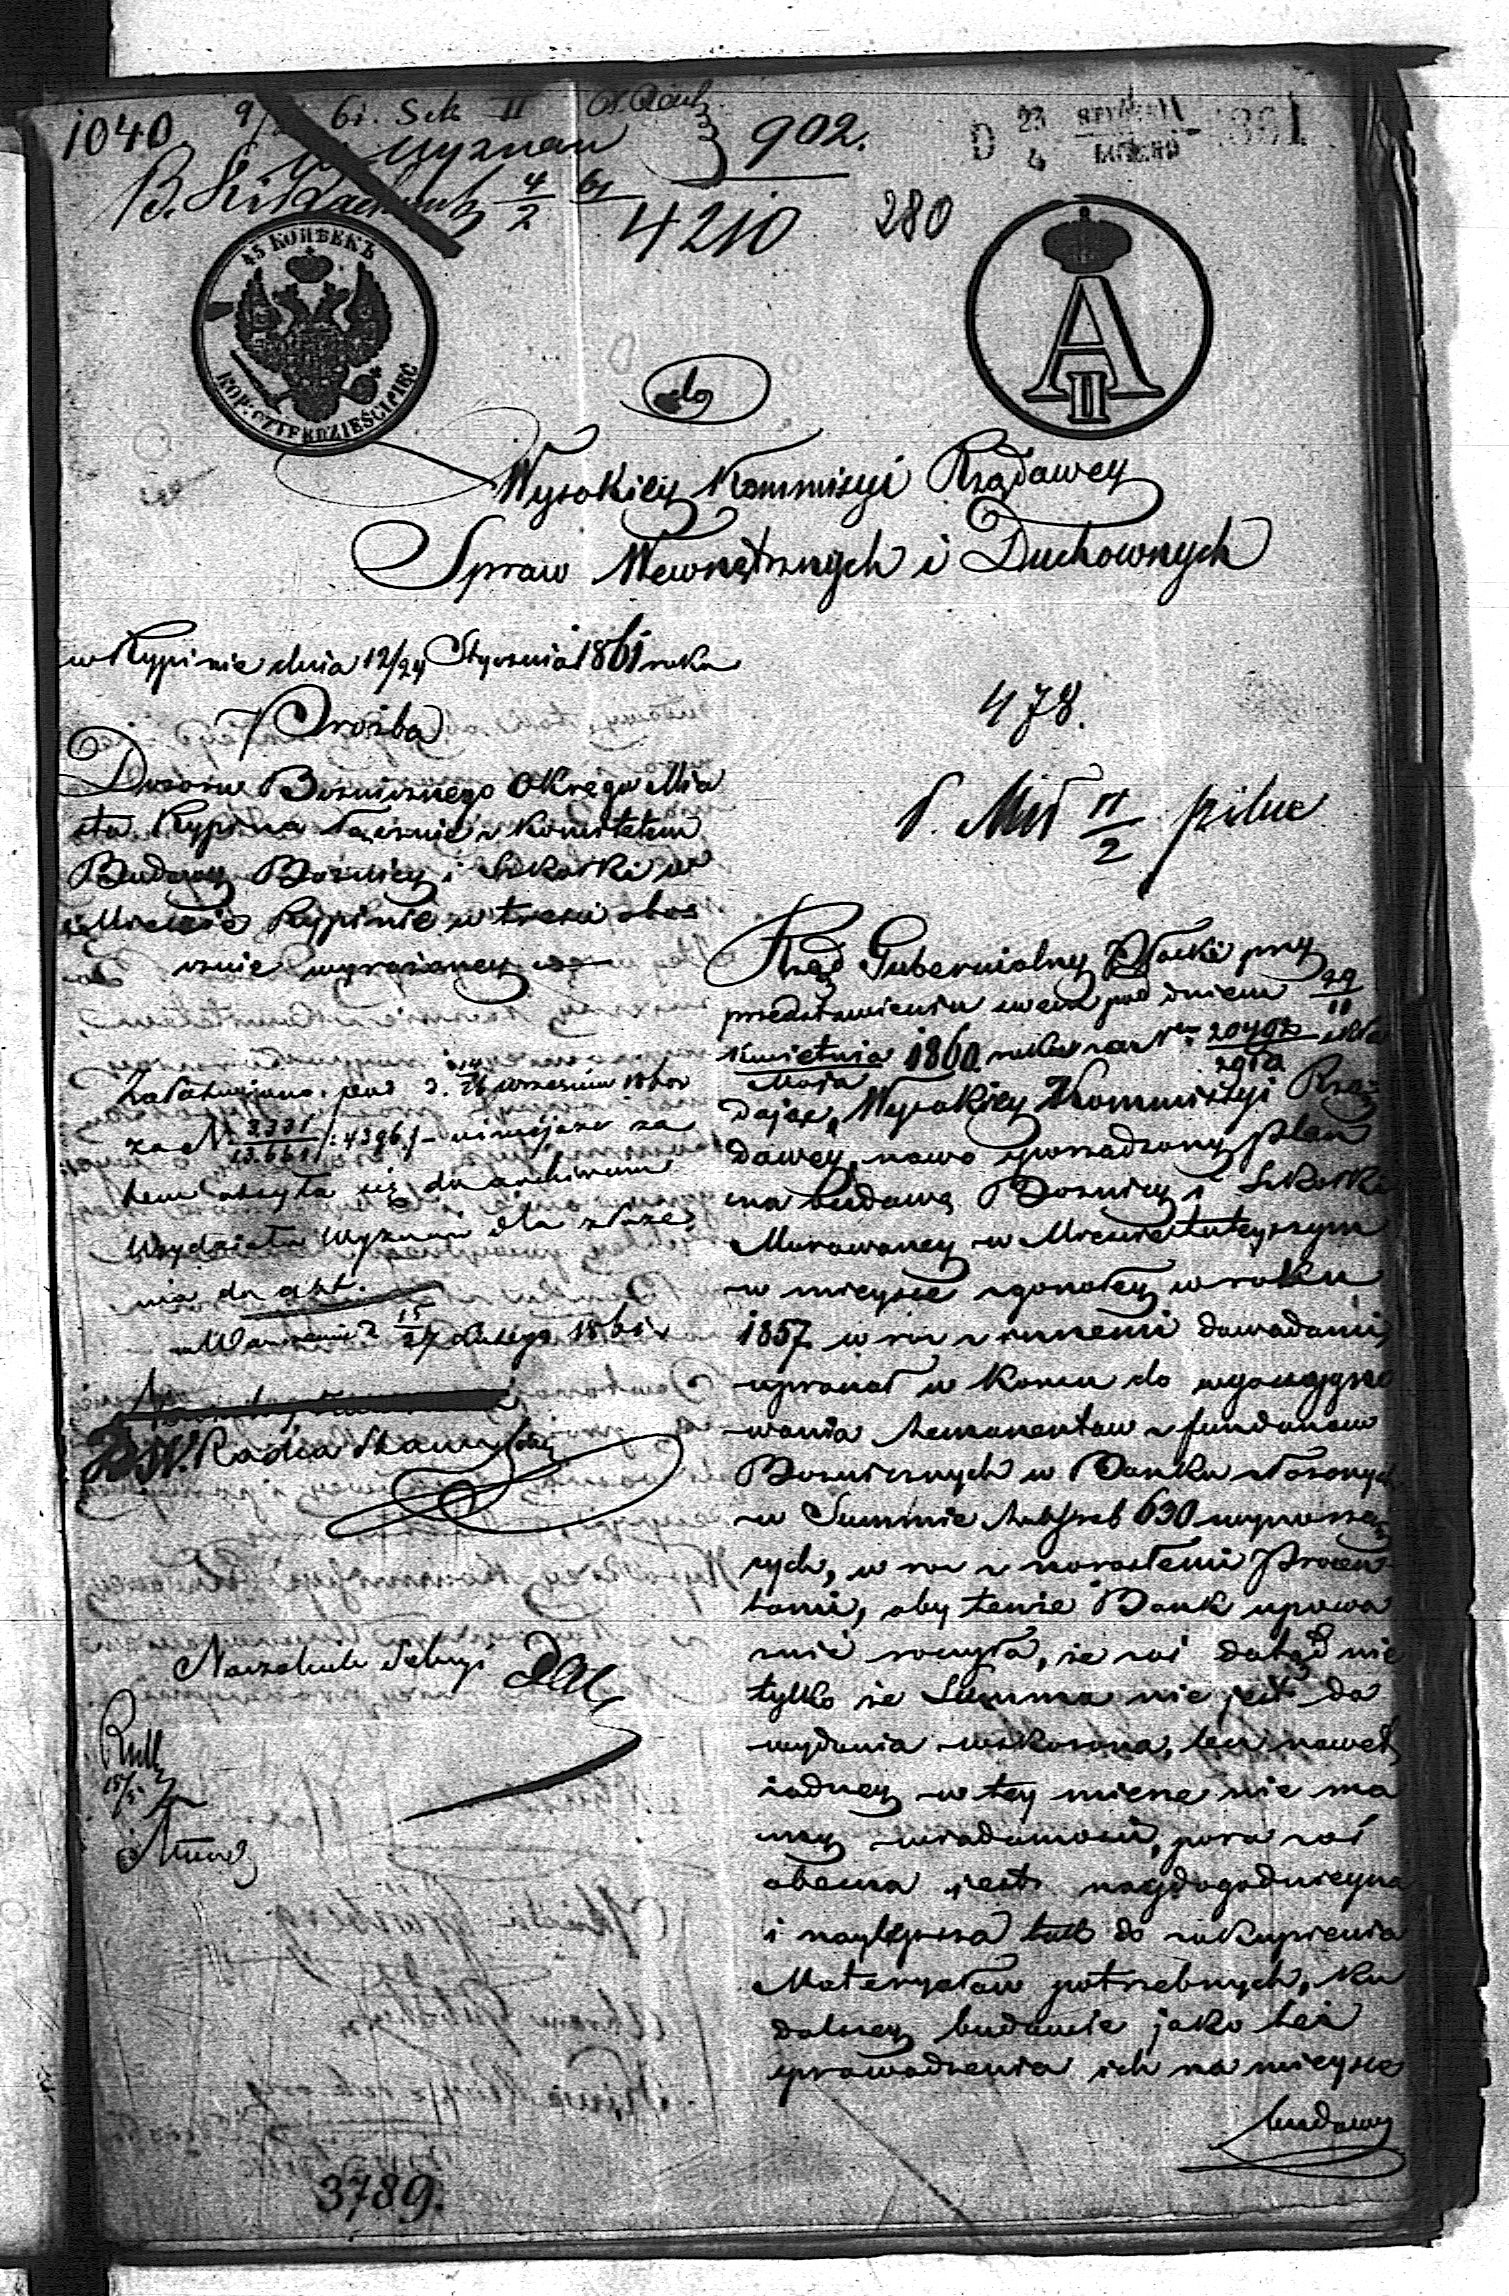 1040
902.
D 23 4 1861
4210
280
45 КОПѢЕКЪ
KOP: CZTERDZIEŚCI PIĘĆ
A II
do
Wysokiey Kommisyi Rządowey
Spraw Wewnętrznych i Duchownych
w Rypinie dnia 12/24 Stycznia 1861 roku
Prożba
Dozoru Bożnicznego Okręgu Mia
sta Rypina łącznie z Komitetem
Budowy Bożnicy i Szkołki w
Mieście Rypinie w treści obo
cznie wyrażoney
478.
11/2 pilne
Załatwiono pod d. Września 1860 r
za N 3331/13.661 niniejsze za
tem odsyła się do archiwum
Wydziału Wyznań dla złoże
nia do akt.
w Warszawie d 15/27 Lutego 1861 r
Radca Stanu
Naczelnik Sekcyi
Rząd Gubernialny Płocki przy
przedstawieniu swem pod dniem 29/11
Kwietnia/Maja 1860 roku za Nrem 20492/2912 skła
dając Wysokiey Kommissyi Rzą
dowey, nowo sporządzony plan
na budowę Bożnicy i Szkołki
Murowaney w Mieście tuteyszym
w mieysce zgorzałey w roku
1857 w raz z innemi dowodami
upraszał w końcu do wyasygno
wania Remanentow z funduszow
Bożnicznych w Banku złożonych
w Summie Rubsreb 630 wynoszą
cych, w raz z narosłemi Procen
tami, aby tenże Bank upowa
żnić raczyła, że zaś dotąd nie
tylko że Summa nie jest do
wydania wskazana, lecz nawet
żadney w tey mierze nie ma
my wiadomości, pora zaś
obecna jest naydogodnieysza
i naylepsza tak do zakupienia
Materyałow potrzebnych, ku
dalszey budowie jako też
sprowadzenia ich na mieysce
budowy
3789.